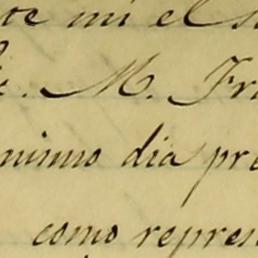 te mi el s
. M. Fr
mismo dia pre
como represen